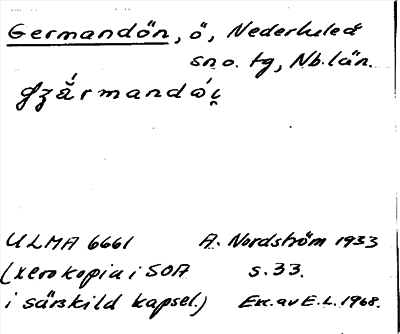 Germandön, ö, Nederluleå
sn o. tg, Nb. län.
ULMA 6661 A. Nordström 1933
(xerokopia i SOA s. 33.
i särskild kapsel.) Exc. av E.L. 1968.